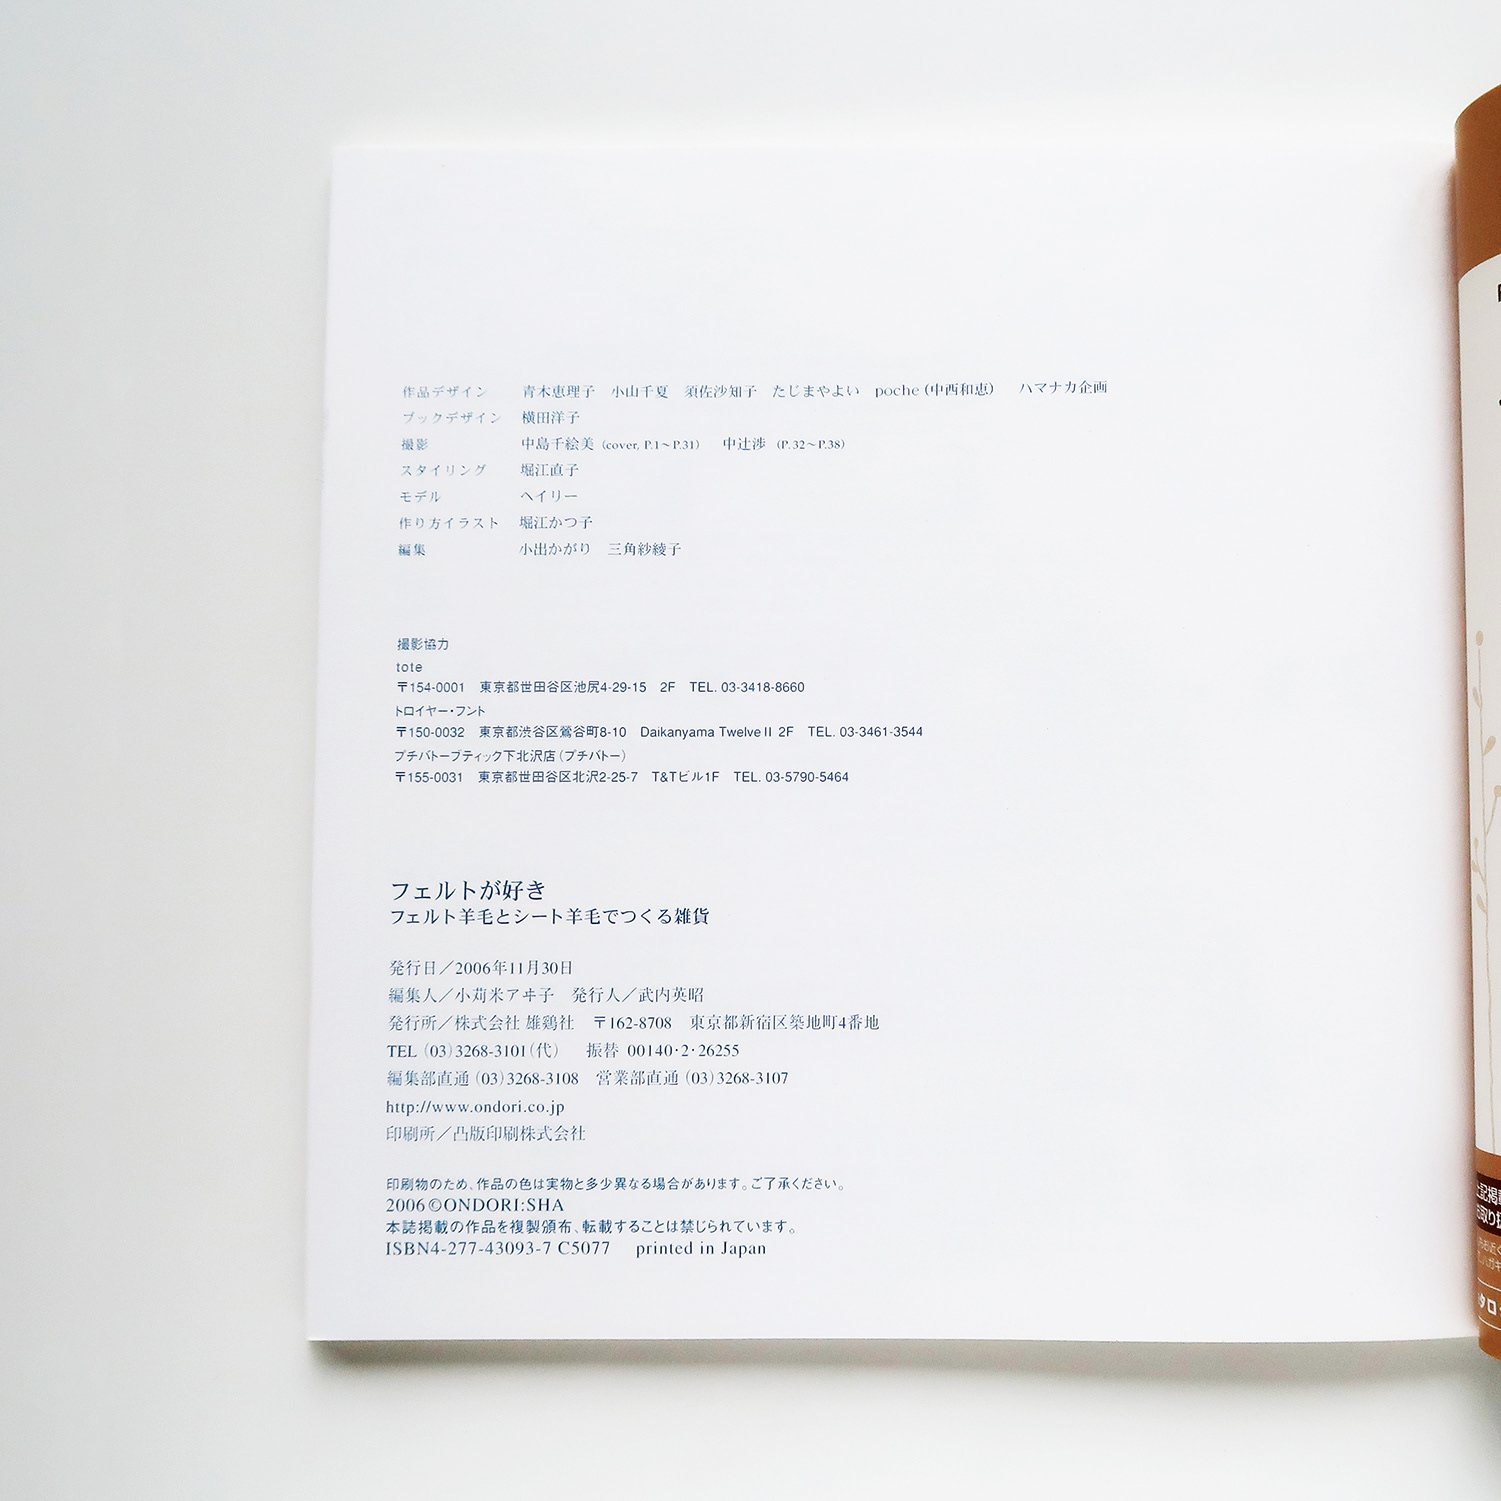 作品デザイン 青木恵理子 小山千夏 須佐沙知子 たじまやよい poche (中西和恵) ハマナカ企画
ブックデザイン 横田洋子
撮影 中島千絵美 (cover, P.1～P.31) 中辻渉 (P.32～P.38)
スタイリング 堀江直子
モデル ヘイリー
作り方イラスト 堀江かつ子
編集 小出かがり 三角紗綾子
撮影協力
tote
〒154-0001 東京都世田谷区池尻4-29-15 2F TEL. 03-3418-8660
トロイヤー・フント
〒150-0032 東京都渋谷区鶯谷町8-10 Daikanyama Twelve II 2F TEL. 03-3461-3544
プチバトーブティック下北沢店(プチバトー)
〒155-0031 東京都世田谷区北沢2-25-7 T&Tビル1F TEL. 03-5790-5464
フェルトが好き
フェルト羊毛とシート羊毛でつくる雑貨
発行日／2006年11月30日
編集人／小苅米アヰ子 発行人／武内英昭
発行所／株式会社 雄鷄社 〒162-8708 東京都新宿区築地町4番地
TEL (03)3268-3101(代) 振替 00140・2・26255
編集部直通 (03)3268-3108 営業部直通 (03)3268-3107
http://www.ondori.co.jp
印刷所／凸版印刷株式会社
印刷物のため、作品の色は実物と多少異なる場合があります。ご了承ください。
2006 ©ONDORI:SHA
本誌掲載の作品を複製頒布、転載することは禁じられています。
ISBN4-277-43093-7 C5077 printed in Japan